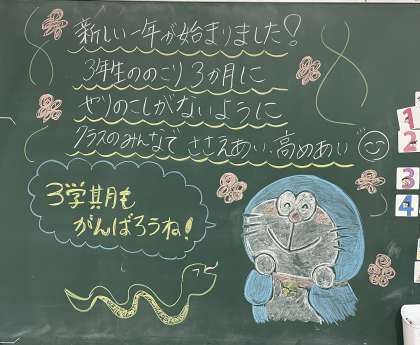 新しい一年が始まりました!
3年生ののこり3か月に
やりのこしがないように
クラスのみんなで ささえあい、高めあい
3学期も
がんばろうね!
1
2
3
4